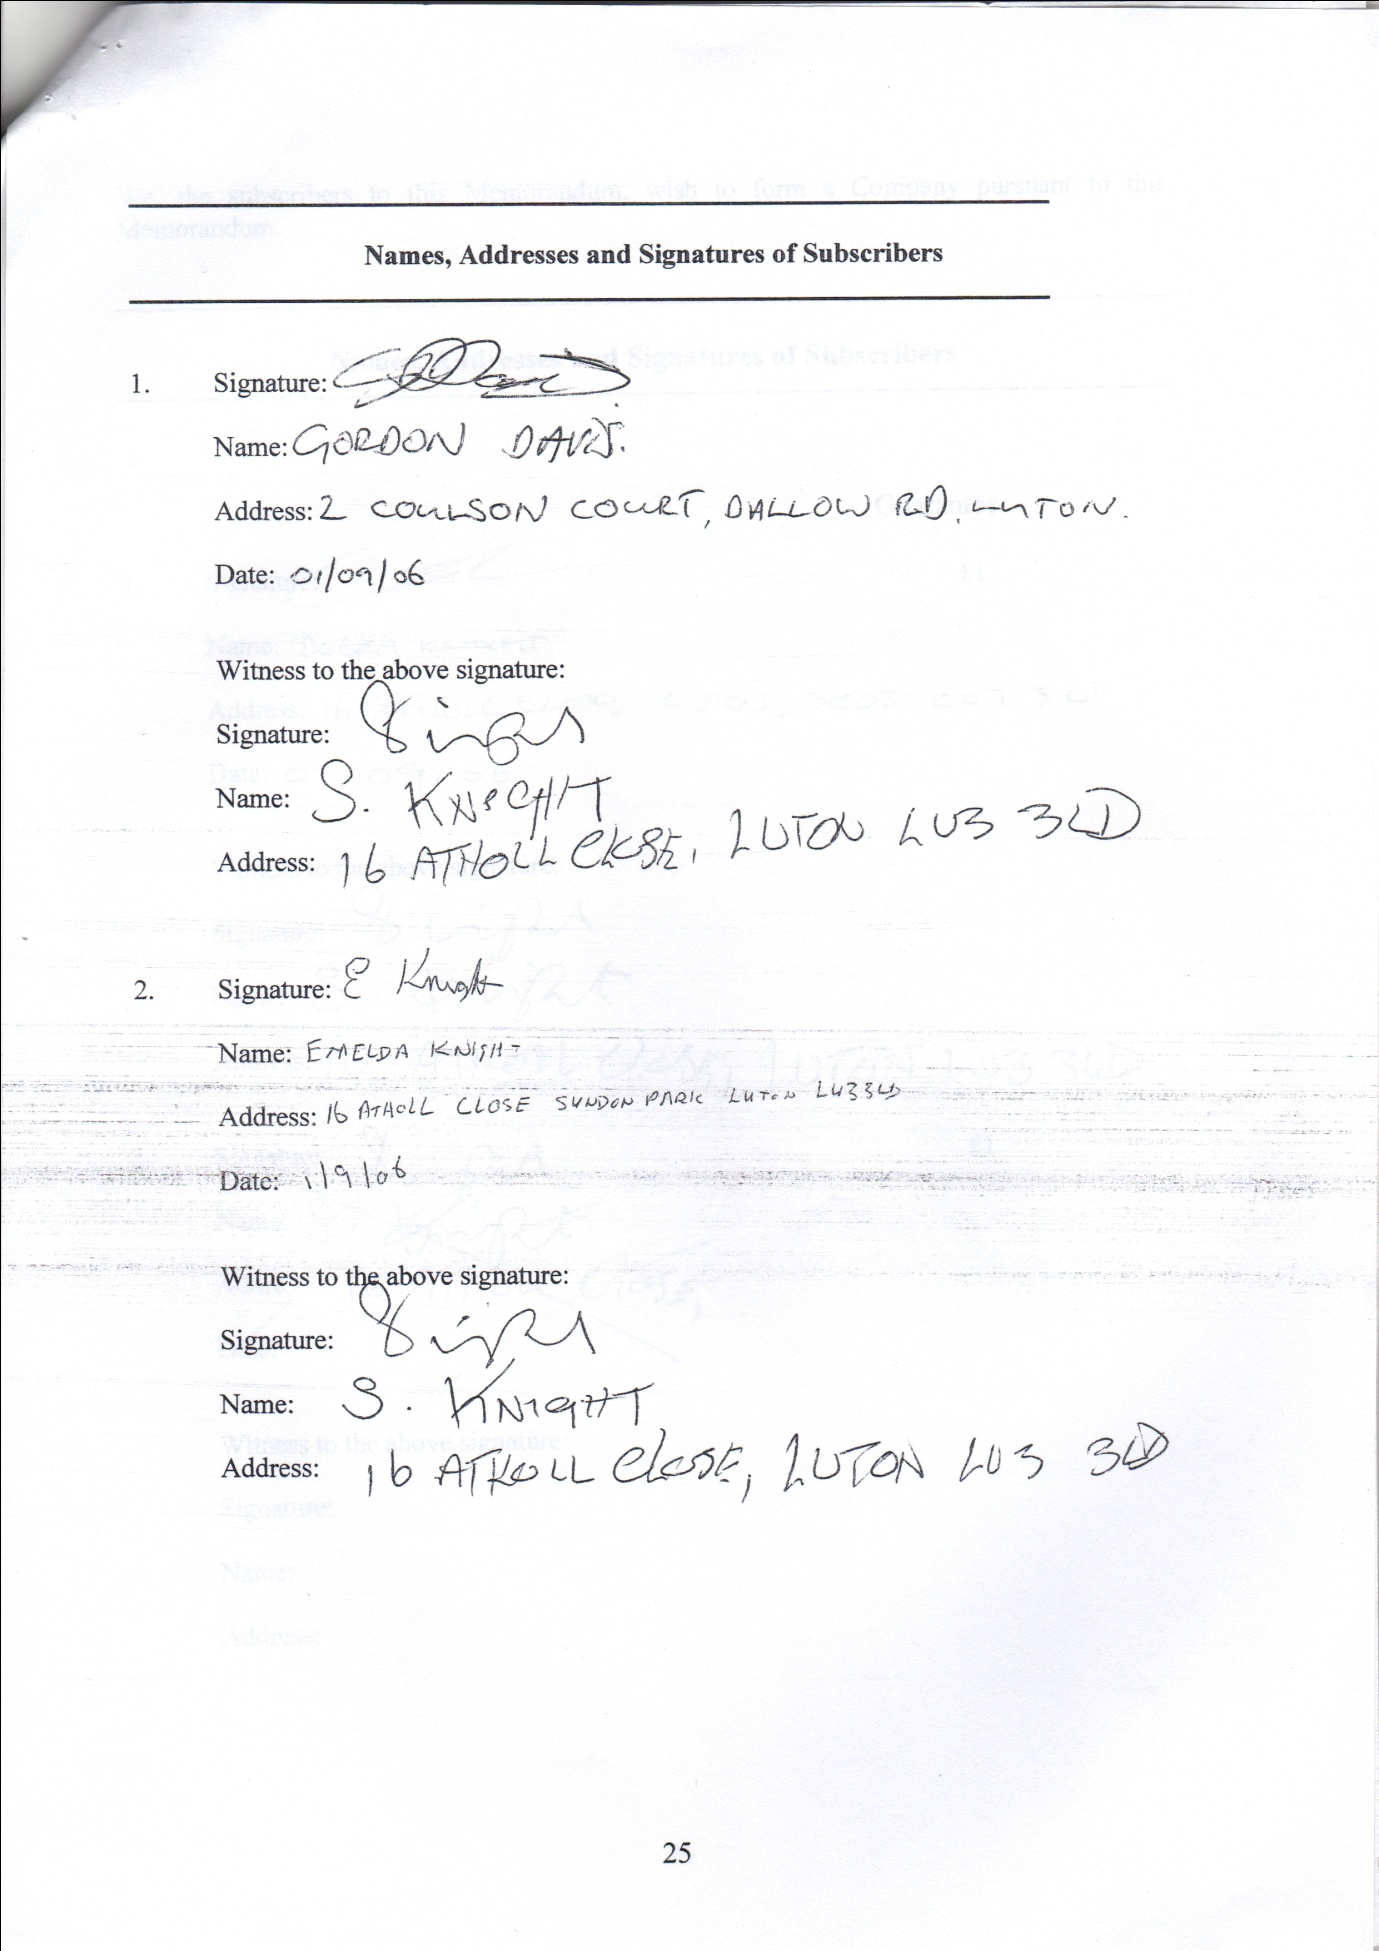 Names, Addresses and Signatures of Subscribers
1. Signature:
Name: GORDON DAVIS.
Address: 2 COULSON COURT, DALLOW RD, LUTON.
Date: 01/09/06
Witness to the above signature:
Signature:
Name: S. KNIGHT
Address: 16 ATHOLL CLOSE, LUTON LU3 3LD
2. Signature: E Knight
Name: EMELDA KNIGHT
Address: 16 ATHOLL CLOSE SUNDON PARK LUTON LU3 3LD
Date: 1/9/06
Witness to the above signature:
Signature:
Name: S. KNIGHT
Address: 16 ATHOLL CLOSE, LUTON LU3 3LD
25